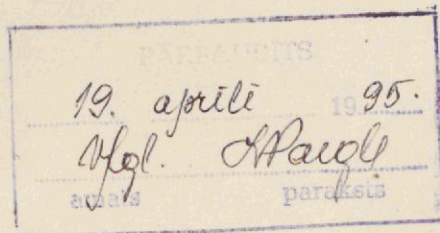 PĀRBAUDĪTS
19. aprīlī 1995.
amats paraksts